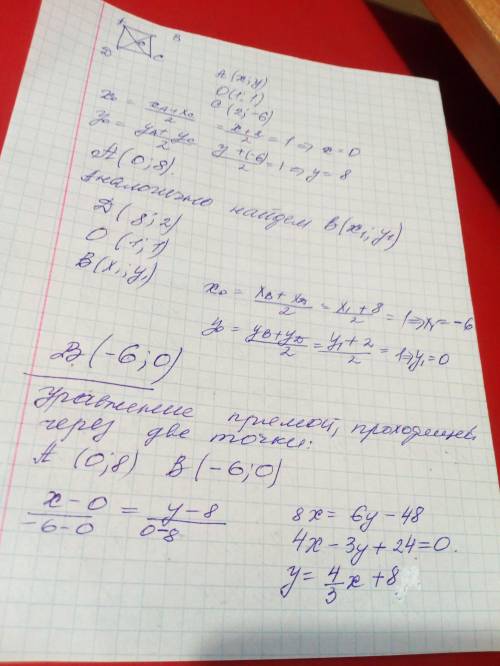 A B
Д C
A (x; y)
O (1; 1)
C (2; -6)
x₀ = (xA + xC)/2 = (x+2)/2 = 1 ⇒ x = 0
y₀ = (yA + yC)/2 = (y+(-6))/2 = 1 ⇒ y = 8
A (0; 8).
Аналогично найдем B(x₁; y₁)
Д (8; 2)
O (1; 1)
B (x₁; y₁)
x₀ = (xB + xД)/2 = (x₁+8)/2 = 1 ⇒ x₁ = -6
y₀ = (yB + yД)/2 = (y₁+2)/2 = 1 ⇒ y₁ = 0
B (-6; 0)
Уравнение прямой, проходящей
через две точки:
A (0; 8) B (-6; 0)
(x-0)/(-6-0) = (y-8)/(0-8)
8x = 6y - 48
4x - 3y + 24 = 0.
y = 4/3 x + 8